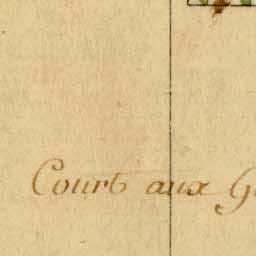 Court aux G